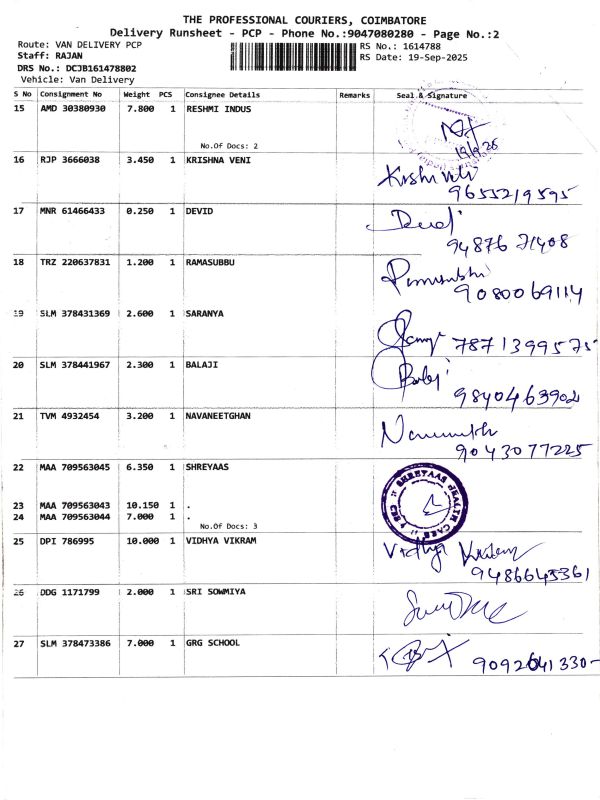 THE PROFESSIONAL COURIERS, COIMBATORE
Delivery Runsheet - PCP - Phone No.:9047080280 - Page No.:2
Route: VAN DELIVERY PCP RS No.: 1614788
Staff: RAJAN RS Date: 19-Sep-2025
DRS No.: DCJB161478802
Vehicle: Van Delivery
S No Consignment No Weight PCS Consignee Details Remarks Seal & Signature
15 AMD 30380930 7.800 1 RESHMI INDUS
No.Of Docs: 2
16 RJP 3666038 3.450 1 KRISHNA VENI
9655219595
17 MNR 61466433 0.250 1 DEVID
94876 71408
18 TRZ 220637831 1.200 1 RAMASUBBU
9080069114
19 SLM 378431369 2.600 1 SARANYA
7871399575
20 SLM 378441967 2.300 1 BALAJI
9840463902
21 TVM 4932454 3.200 1 NAVANEETGHAN
9043077225
22 MAA 709563045 6.350 1 SHREYAAS
SHREYAAS HEALTH CARE
23 MAA 709563043 10.150 1 .
24 MAA 709563044 7.000 1 .
No.Of Docs: 3
25 DPI 786995 10.000 1 VIDHYA VIKRAM
Vidhya
9486645361
26 DDG 1171799 2.000 1 SRI SOWMIYA
27 SLM 378473386 7.000 1 GRG SCHOOL
9092641330